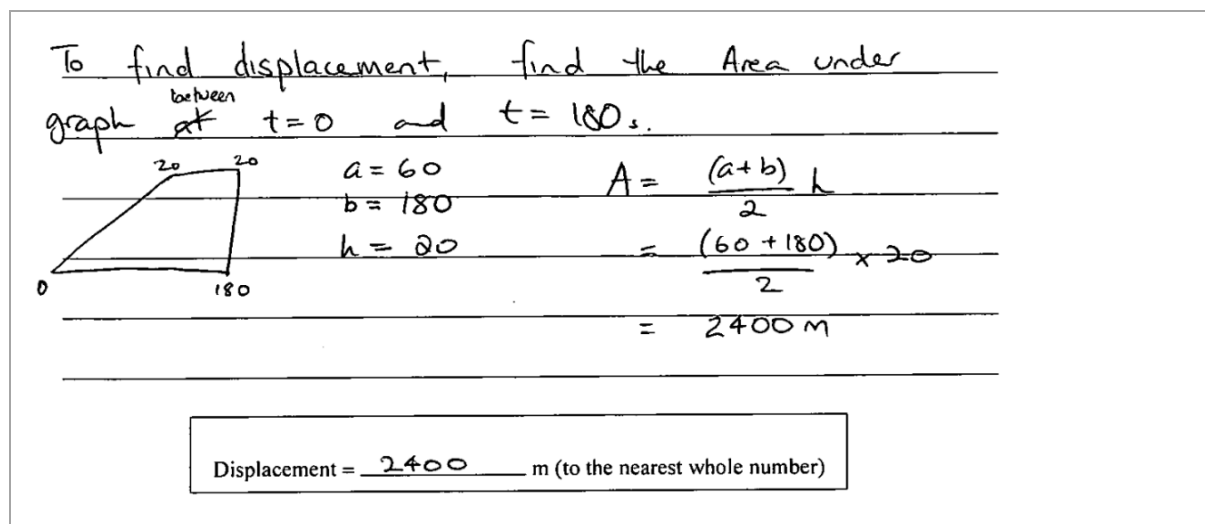 To find displacement, find the Area under
between
graph at t=0 and t= 180s.
20 20
a = 60
b = 180
h = 20
0 180
A = (a+b)/2 h
= (60 + 180)/2 × 20
= 2400 m
Displacement = 2400 m (to the nearest whole number)